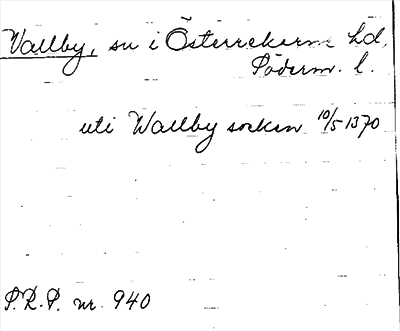 Vallby, sn i Österrekarne hd,
Söderm. l.
uti Wallby socken 10/5 1370
P.R.P. nr. 940